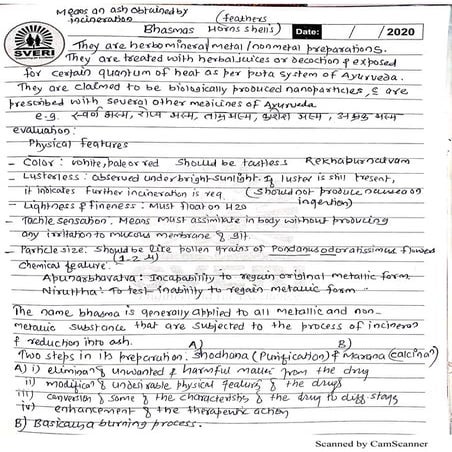 Means an ash obtained by
incineration
(feathers
Horns shells)
Bhasmas
Date: / / 2020
SVERI
They are herbomineral/metal/nonmetal preparations.
They are treated with herbal juices or decoction & exposed
for certain quantum of heat as per puta system of Ayurveda.
They are claimed to be biologically produced nanoparticles, & are
prescribed with several other medicines of Ayurveda
e.g. स्वर्ण भस्म, रौप्य भस्म, ताम्र भस्म, भस्म, अभ्रक भस्म
evaluation:
Physical features
- Color: White, pale or red should be tastless Rekhapurnatvam
- Lusterless: Observed under bright sunlight. If luster is still present,
it indicates further incineration is req (should not produce nausea on
ingention)
- Lightness & fineness: Must float on H2O
- Tactile sensation. Means must assimilate in body without producing
any irritation to mucous membrane & git.
- Particle size. Should be like pollen grains of Pandanus odoratissimus flower
(1-2 μ)
Chemical feature:
Apunarbhavatva: Incapability to regain original metallic form.
Niruttha: To test inability to regain metallic form.
The name bhasma is generally applied to all metallic and non-
metallic substance that are subjected to the process of inciner
& reduction into ash. A) B)
Two steps in its preparation. Shodhana (Purification) & Marana (calcina
A) i) elimin of unwanted & harmful matter from the drug
ii) modifica of undesirable physical feature of the drugs
iii) conversion of some of the characteristics of the drug to diff. stags
iv) enhancement of the therapeutic action
B) Basically a burning process.
Scanned by CamScanner